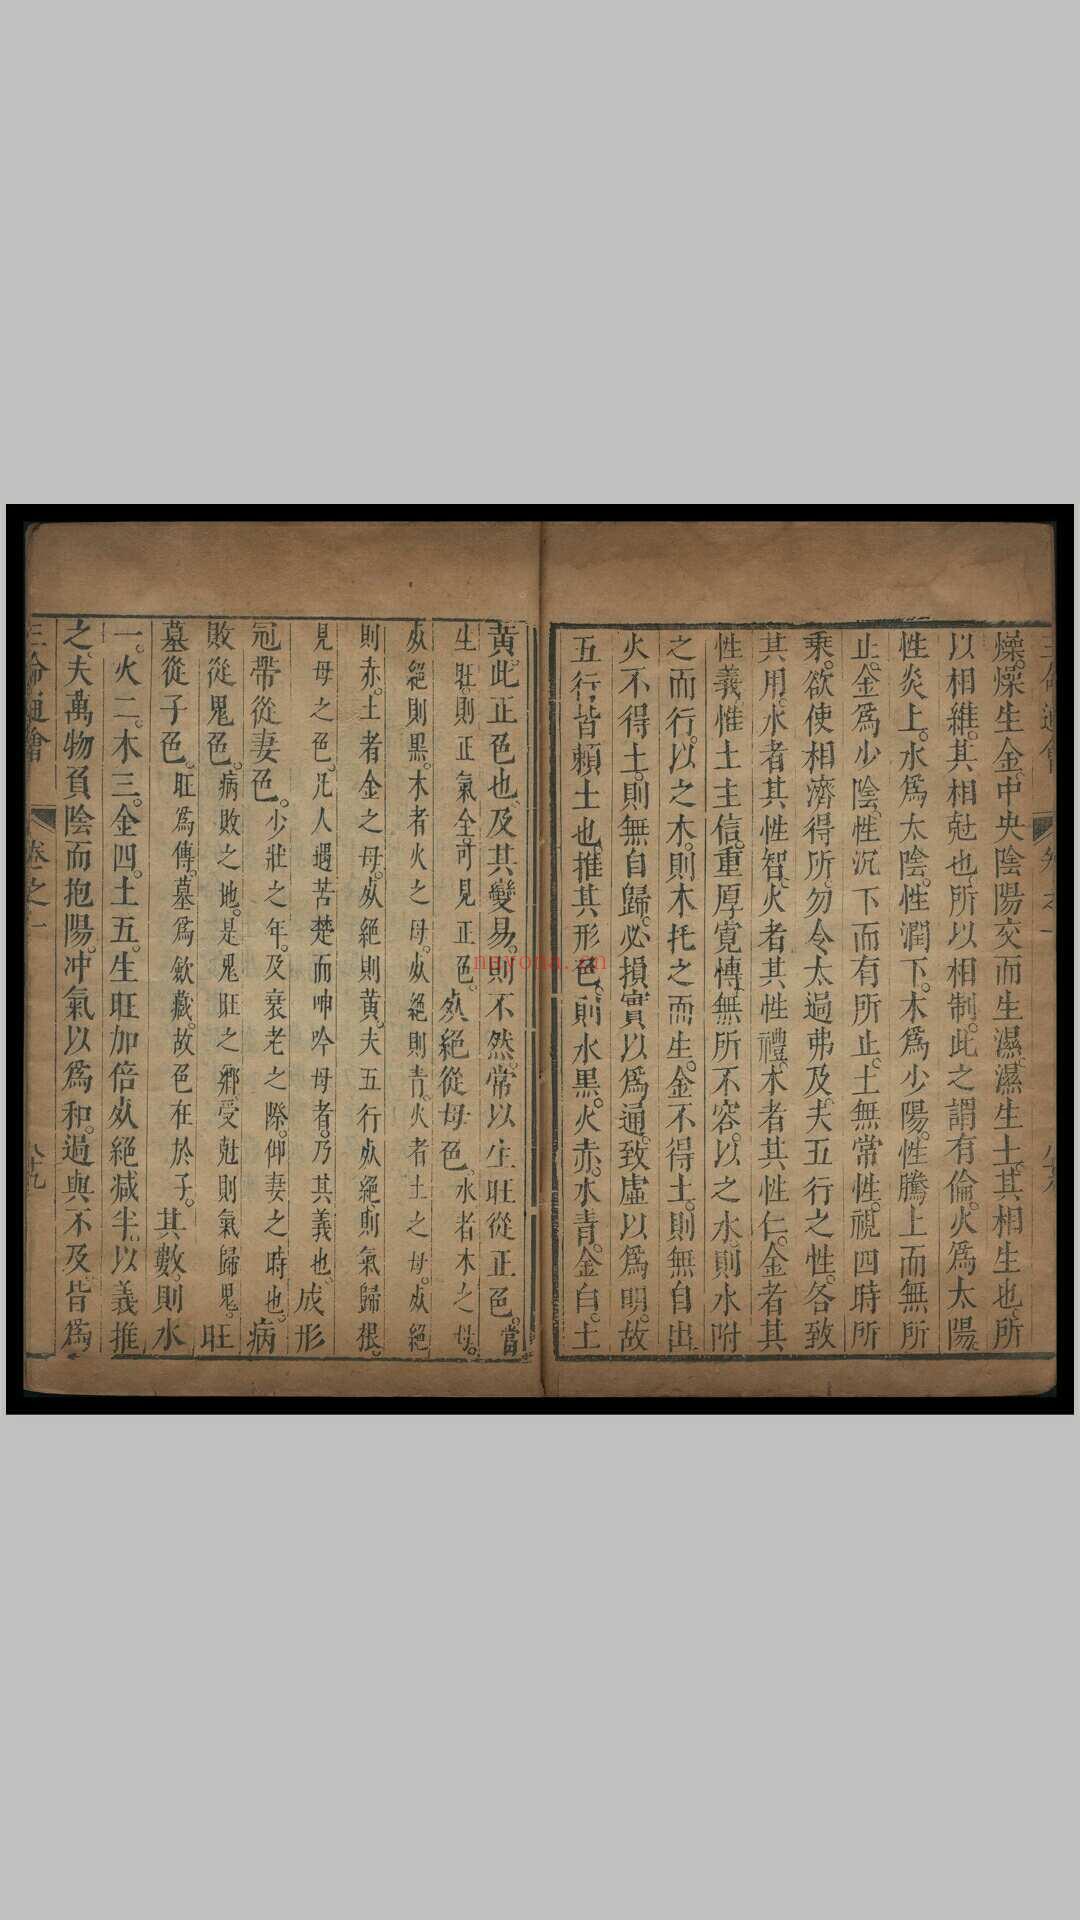 燥。燥生金。中央陰陽交而生濕。濕生土。其相生也。所
以相維。其相尅也。所以相制。此之謂有倫。火為太陽。
性炎上。水為太陰。性潤下。木為少陽。性騰上而無所
止。金為少陰。性沉下而有所止。土無常性。視四時所
乘。欲使相濟得所。勿令太過弗及。夫五行之性。各致
其用。水者其性智。火者其性禮。木者其性仁。金者其
性義。惟土主信。重厚寬慱。無所不容。以之水。則水附
之而行。以之木。則木托之而生。金不得土。則無自出。
火不得土。則無自歸。必損實以為通。致虛以為明。故
五行皆賴土也。推其形色。則水黑。火赤。木青。金白。土
黃。此正色也。及其變易。則不然。常以生旺從正色。當
生旺。則正氣全。可見正色。死絕從母色。水者木之母。
死絕則黑。木者火之母。死絕則青。火者土之母。死絕
則赤。土者金之母。死絕則黃。夫五行死絕。則氣歸根。
見母之色。凡人遇苦楚而呻吟母者。乃其義也。成形
冠帶從妻色。少壯之年。及衰老之際。仰妻之時也。病
敗從鬼色。病敗之地。是鬼旺之鄉。受尅則氣歸鬼。旺
墓從子色。旺為傳。墓為歛藏。故色在於子。其數。則水
一。火二。木三。金四。土五。生旺加倍。死絕減半。以義推
之。夫萬物負陰而抱陽。冲氣以為和。過與不及。皆為
三命通會 卷之一
neyona.cn